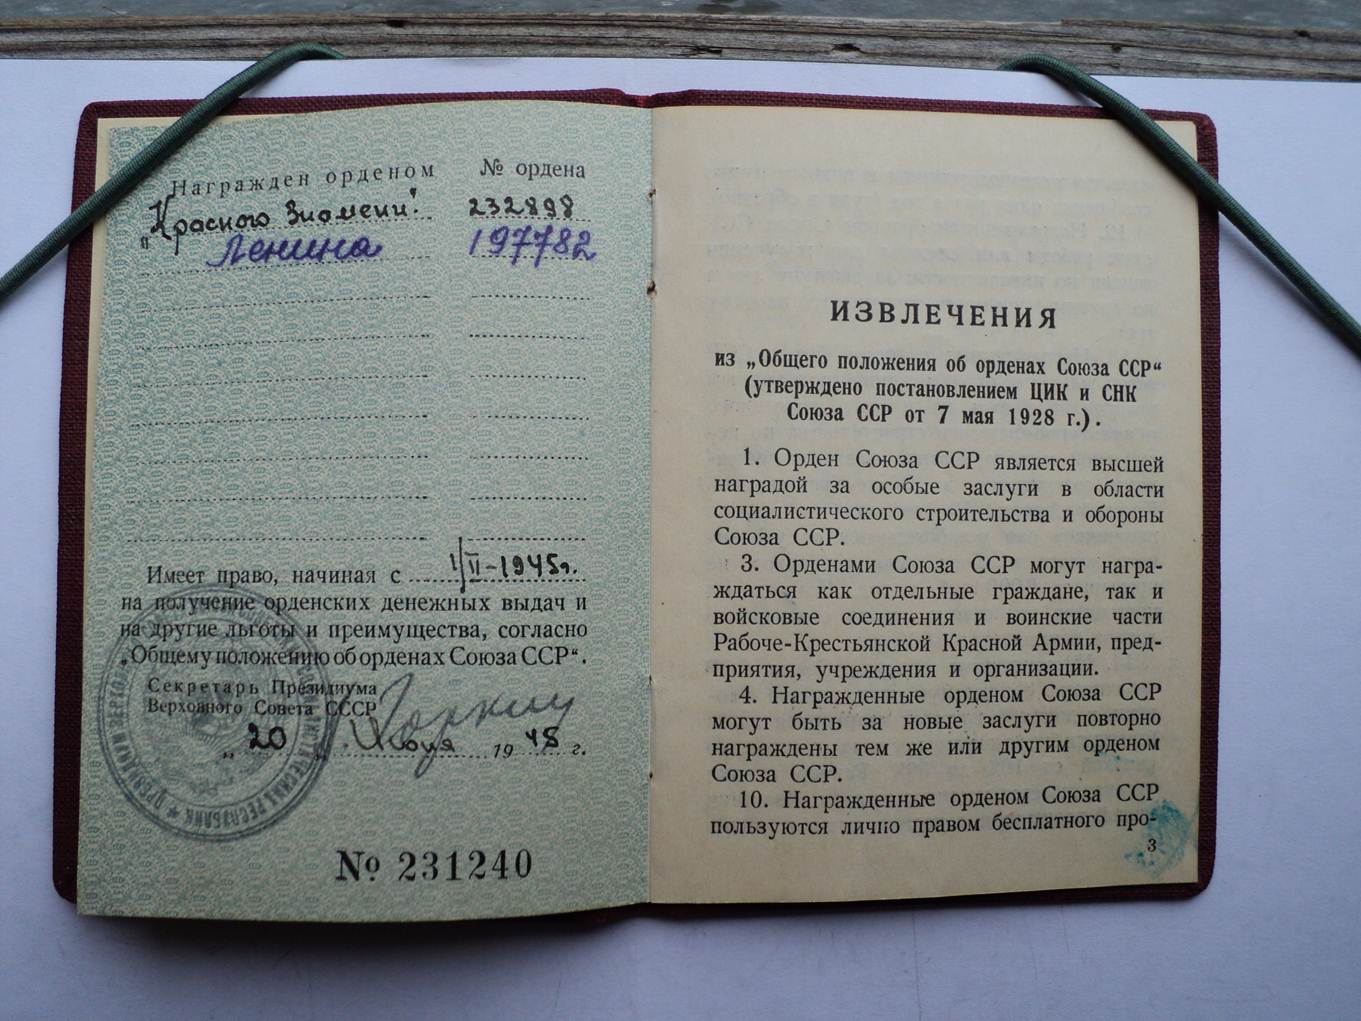 Награжден орденом № ордена
„Красного Знамени". 232898
Ленина 197782
Имеет право, начиная с 1/II-1945г.
на получение орденских денежных выдач и
на другие льготы и преимущества, согласно
„Общему положению об орденах Союза ССР“.
Секретарь Президиума
Верховного Совета СССР
„20 Июля 1948 г.
№ 231240
ИЗВЛЕЧЕНИЯ
из „Общего положения об орденах Союза ССР“
(утверждено постановлением ЦИК и СНК
Союза ССР от 7 мая 1928 г.).
1. Орден Союза ССР является высшей
наградой за особые заслуги в области
социалистического строительства и обороны
Союза ССР.
3. Орденами Союза ССР могут награ-
ждаться как отдельные граждане, так и
войсковые соединения и воинские части
Рабоче-Крестьянской Красной Армии, пред-
приятия, учреждения и организации.
4. Награжденные орденом Союза ССР
могут быть за новые заслуги повторно
награждены тем же или другим орденом
Союза ССР.
10. Награжденные орденом Союза ССР
пользуются лично правом бесплатного про-
3